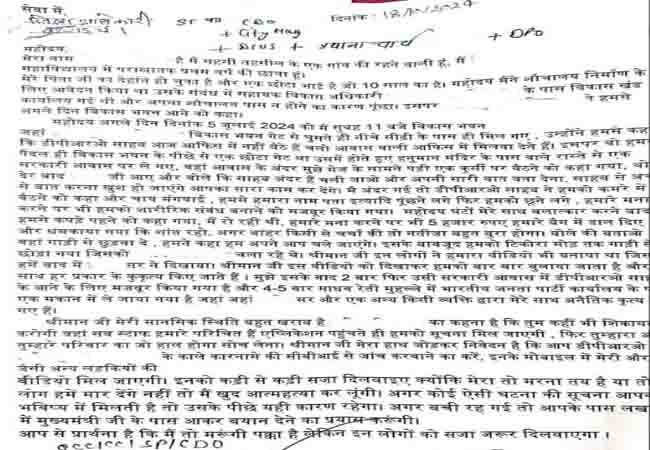 सेवा में,
जिला
दिनांक: 18/11/2024
CDO
+ City Mag
+ DIOS + प्रधानाचार्य + DPO
महोदय,
मेरा नाम है मैं महगी तहसील के एक गांव की रहने वाली हूं, मैं
महाविद्यालय में परास्नातक प्रथम वर्ष की छात्रा हूं।
मेरे पिता जी का देहांत हो चुका है और एक छोटा भाई है जो 10 साल का है। महोदय मैंने शौचालय निर्माण के
लिए आवेदन किया था उसके संबंध में सहायक विकास अधिकारी के पास विकास खंड
कार्यालय गई थी और अपना शौचालय पास न होने का कारण पूंछा। उसपर ने हमसे
अगले दिन विकास भवन आने को कहा।
महोदय अगले दिन दिनांक 5 जुलाई 2024 को मैं सुबह 11 बजे विकास भवन
जहां विकास भवन गेट से घुसते ही नीचे सीढ़ी के पास ही मिल गए, उन्होंने हमसे कहा
कि डीपीआरओ साहब आज आफिस में नहीं बैठे हैं चलो आवास वाली आफिस में मिलवा देते हैं। इसपर वो हमको
पैदल ही विकास भवन के पीछे से एक छोटा गेट था उसमें होते हुए हनुमान मंदिर के पास वाले रास्ते से एक
सरकारी आवास पर ले गए, वहां आवास के अंदर मुझे मेज के सामने पड़ी एक कुर्सी पर बैठने को कहा गया, थोड़ी
देर बाद जी आए और बोले कि साहब अंदर हैं चली जाओ और अपनी सारी बात बता देना, साहब से अच्छे
से बात करना खुश हो जाएंगे आपका सारा काम कर देंगे। मैं अंदर गई तो डीपीआरओ साहब ने हमको कमरे में
बैठने को कहा और चाय मंगवाई, हमसे हमारा नाम पता इत्यादि पूंछने लगे फिर हमको छूने लगे, हमारे मना
करने पर भी हमको शारीरिक संबंध बनाने को मजबूर किया गया। महोदय घंटों मेरे साथ बलात्कार करने के बाद
हमसे कपड़े पहनने को कहा गया, मैं रो रही थी, हमारे मना करने पर भी 5 हजार रुपए हमारे बैग में डाल दिए
और धमकाया गया कि शांत रहो, अगर बाहर किसी से चर्चा की तो नतीजा बहुत बुरा होगा। बोले की बताओ
कहां गाड़ी से छुड़वा दें, हमने कहा हम अपने आप चले जाएंगे। इसके बावजूद हमको टिकोरा मोड़ तक गाड़ी से
छोड़ा गया जिसको चला रहे थे। श्रीमान जी इन लोगों ने हमारा वीडियो भी बनाया था जिसको
हमें बाद में सर ने दिखाया। श्रीमान जी इस वीडियो को दिखाकर हमको बार बार बुलाया जाता है और मेरे
साथ हर प्रकार के कुकृत्य किए जाते हैं। मुझे इसके बाद 2 बार फिर उसी सरकारी आवास में डीपीआरओ साहब
के आने के लिए मजबूर किया गया है और 4-5 बार माधव रेती मुहल्ले में भारतीय जनता पार्टी कार्यालय के पास
एक मकान में ले जाया गया है जहां जहां सर और एक अन्य किसी व्यक्ति द्वारा मेरे साथ अनैतिक कृत्य किए
गए हैं।
श्रीमान जी मेरी मानसिक स्थिति बहुत खराब है का कहना है कि तुम कहीं भी शिकायत
करोगी वहां सब स्टाफ हमारे परिचित हैं एप्लिकेशन पहुंचते ही हमको सूचना मिल जाएगी, फिर तुम्हारा और
तुम्हारे परिवार का जो हाल होगा सोच लेना। श्रीमान जी मेरा हाथ जोड़कर निवेदन है कि आप डीपीआरओ
के काले कारनामे की सीबीआई से जांच करवाने का करें, इनके मोबाइल में मेरी और मेरी
जैसी अन्य लड़कियों की
वीडियो मिल जाएगी। इनको कड़ी से कड़ी सजा दिलवाइए क्योंकि मेरा तो मरना तय है या तो
लोग हमें मार देंगे नहीं तो मैं खुद आत्महत्या कर लूंगी। अगर कोई ऐसी घटना की सूचना आपको
भविष्य में मिलती है तो उसके पीछे यही कारण रहेगा। अगर बची रह गई तो आपके पास लखनऊ
में मुख्यमंत्री जी के पास आकर बयान देने का प्रयास करूंगी।
आप से प्रार्थना है कि मैं तो मरूंगी पक्का है लेकिन इन लोगों को सजा जरूर दिलवाएगा।
SP/CDO